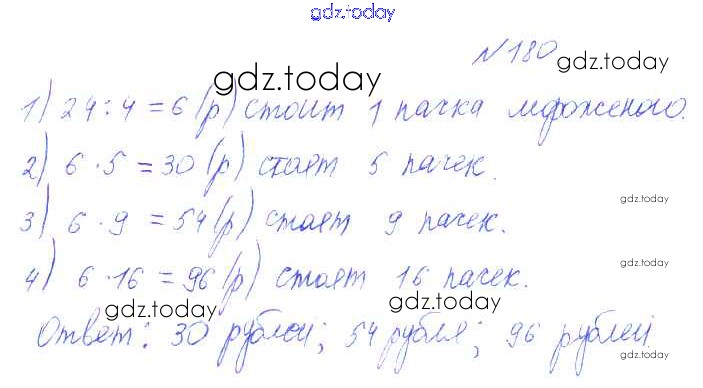 gdz.today
№180
gdz.today
gdz.today
1) 24:4=6(р) стоит 1 пачка мороженого.
2) 6·5=30(р) стоят 5 пачек.
gdz.today
3) 6·9=54(р) стоят 9 пачек.
gdz.today
4) 6·16=96(р) стоят 16 пачек.
gdz.today
gdz.today
Ответ: 30 рублей; 54 рубля; 96 рублей.
gdz.today